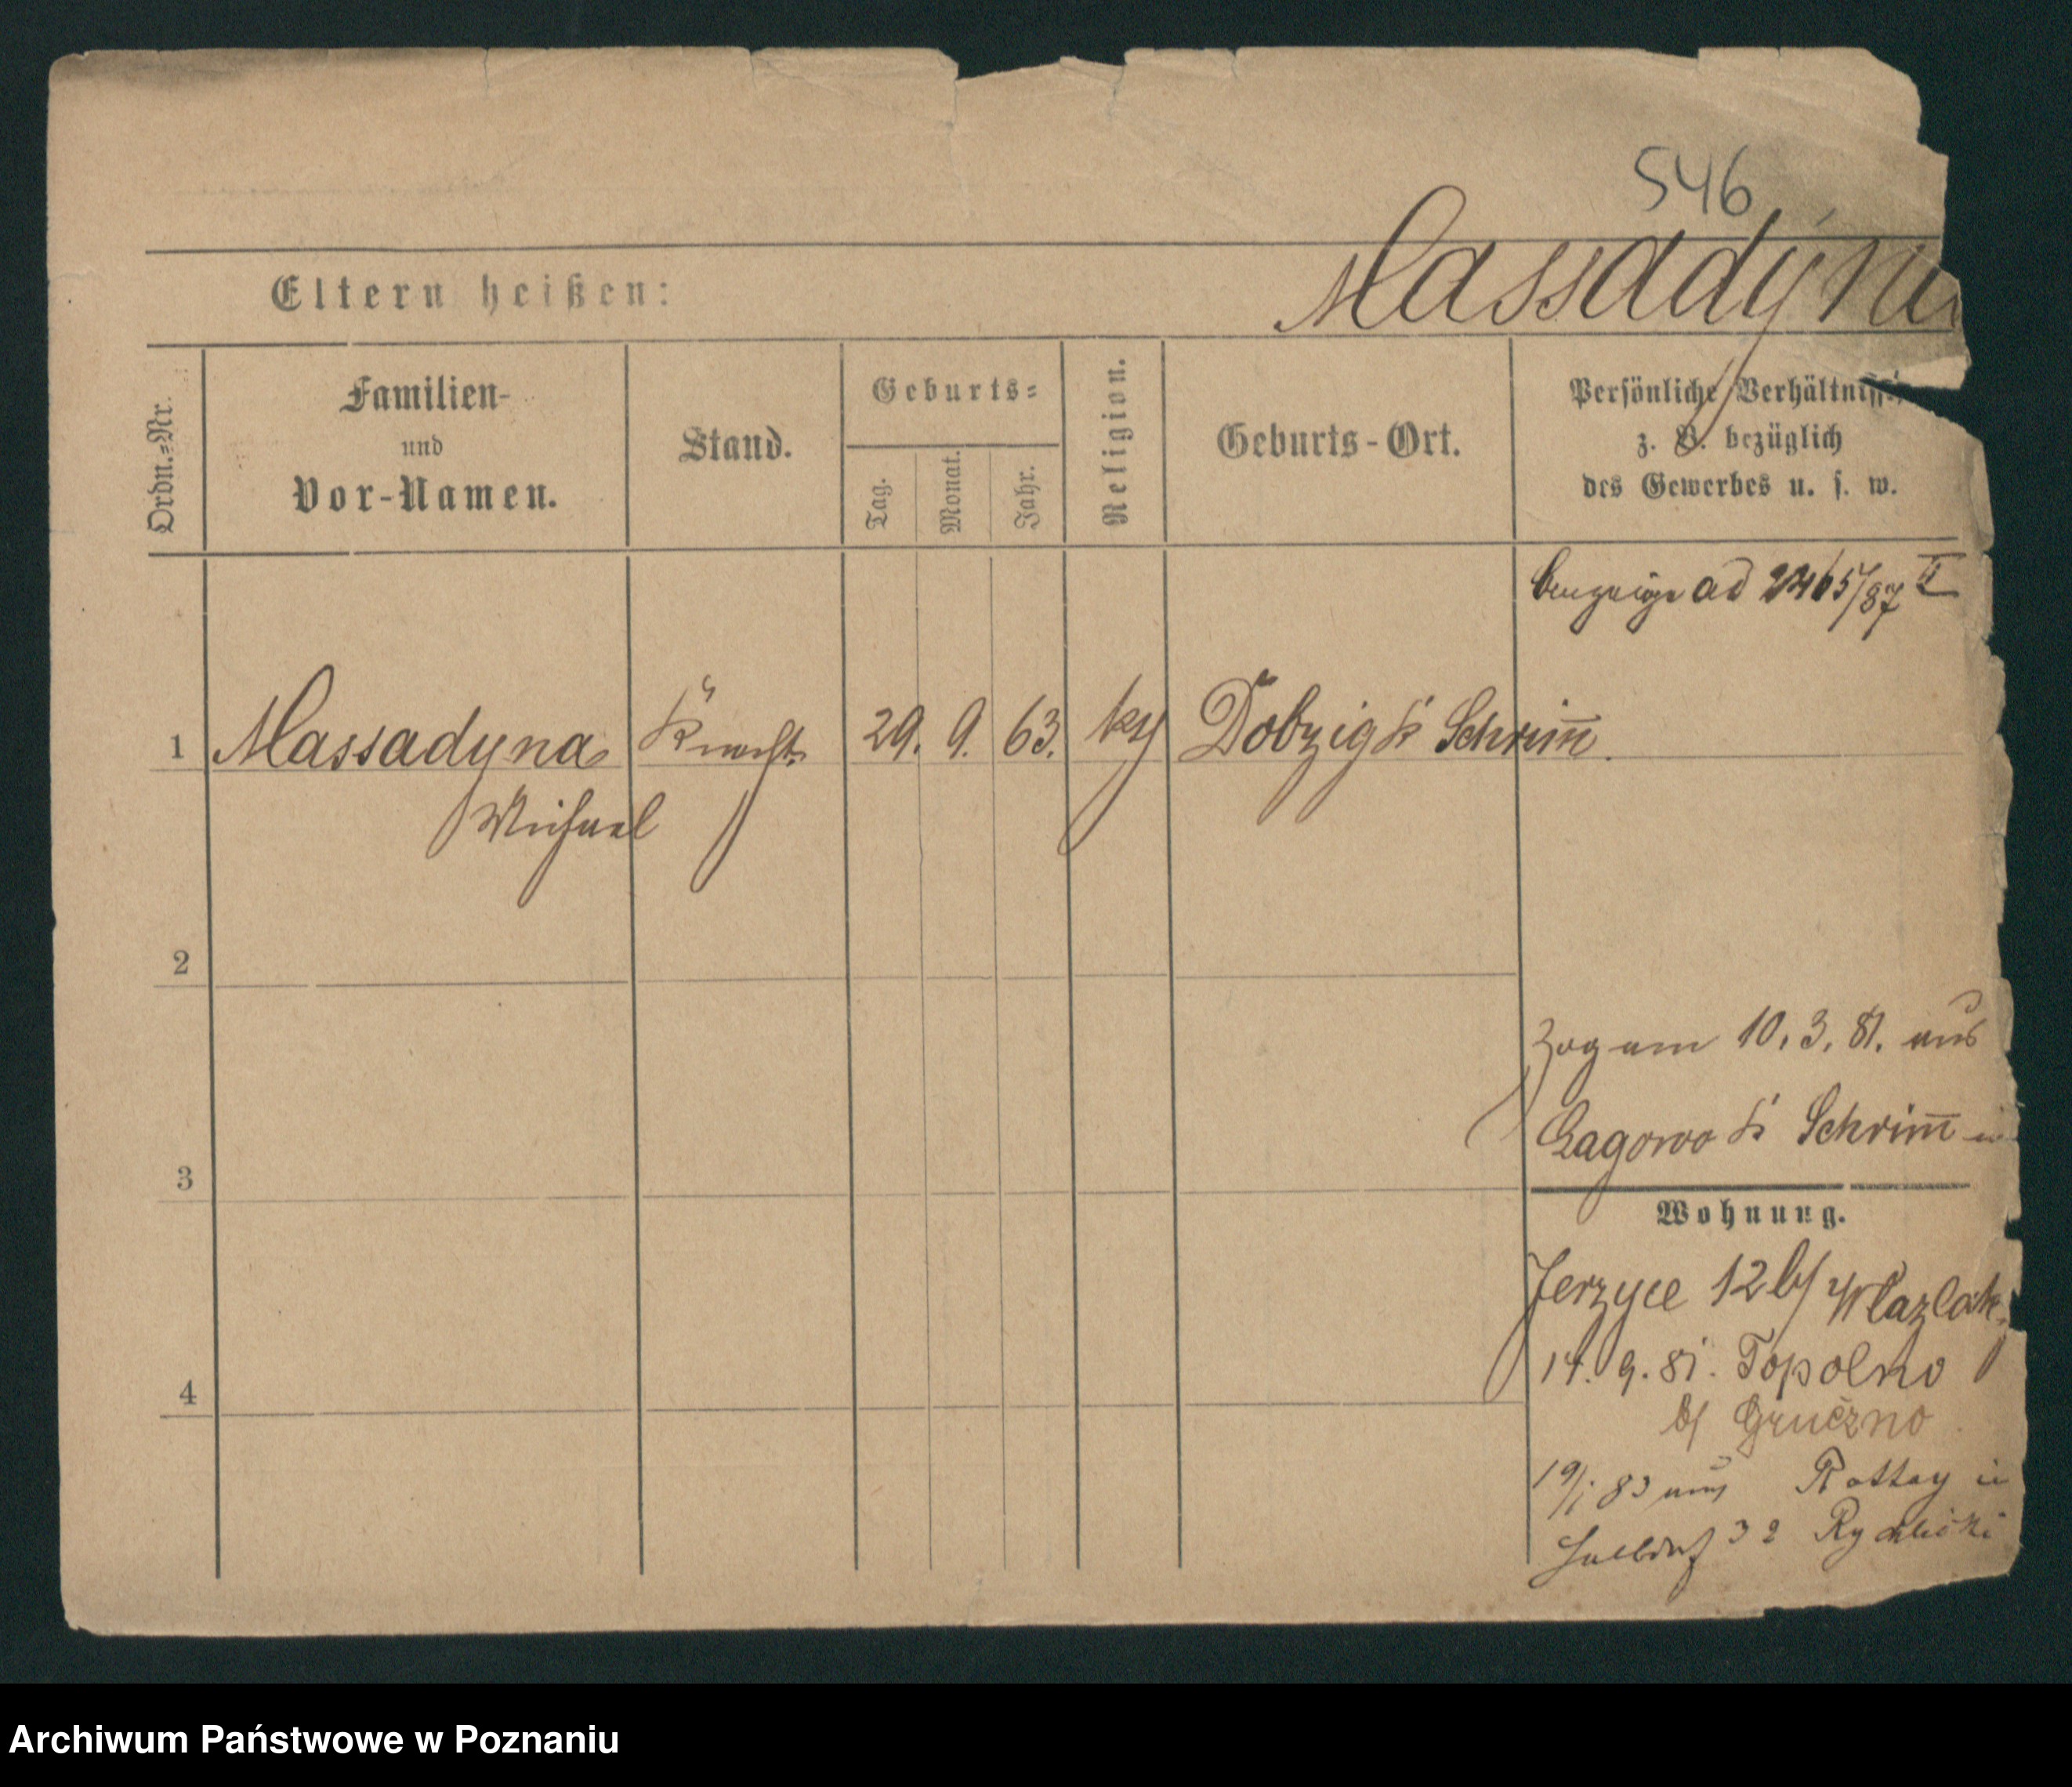 546
Massadyna
Eltern heißen:
Ordn.-Nr.
Familien-
und
Vor-Namen.
Stand.
Geburts-
Tag.
Monat.
Jahr.
Religion.
Geburts-Ort.
Persönliche Verhältnisse
z. B. bezüglich
des Gewerbes u. s. w.
ad 2465/87 II
1 Massadyna Knecht 29. 9. 63. Dobzig Kr Schrim̅.
Michael
2
Zog am 10. 3. 81. aus
Gagowo Kr Schrim̅ in
3
Wohnung.
Jerzyce 12 b/ Wlazlak.
14. 9. 81. Topolno
4
b/ Gruczno
19/1 83 aus Rattay in
32 Rychlicki
Archiwum Państwowe w Poznaniu